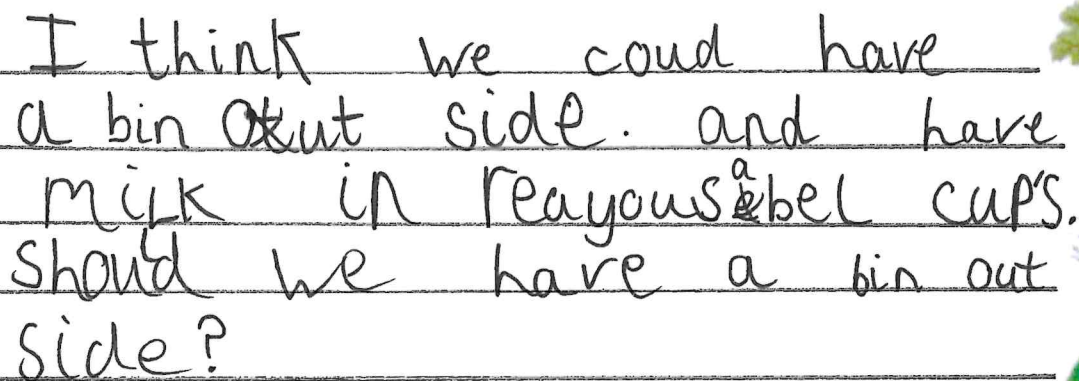 I think we coud have
a bin out side. and have
milk in reayousabel cup's.
should we have a bin out
side?